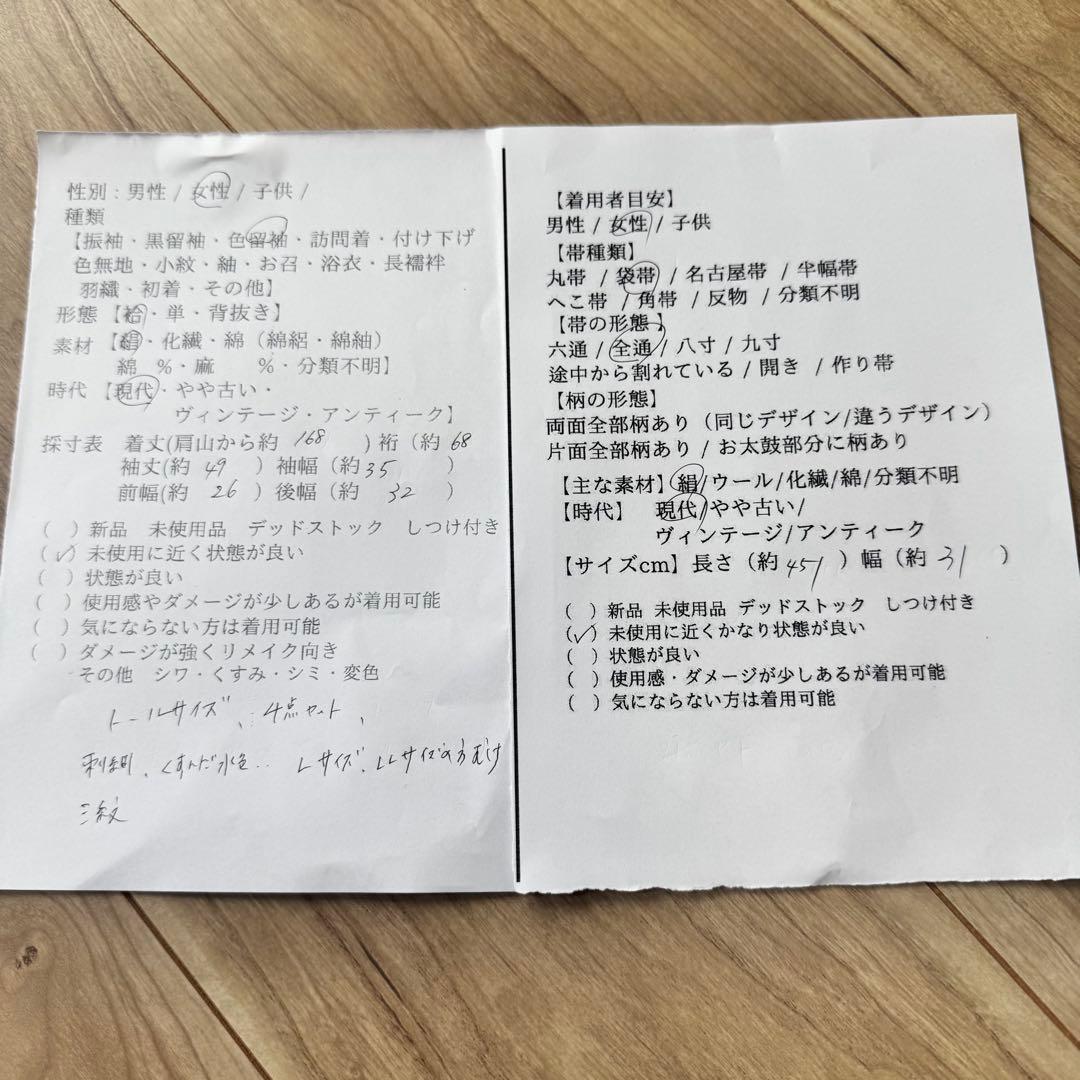 性別：男性 / 女性 / 子供 /
種類
【振袖・黒留袖・色留袖・訪問着・付け下げ
色無地・小紋・紬・お召・浴衣・長襦袢
羽織・初着・その他】
形態【袷・単・背抜き】
素材【絹・化繊・綿（綿絽・綿紬）
綿 %・麻 %・分類不明】
時代【現代・やや古い・
ヴィンテージ・アンティーク】
採寸表 着丈(肩山から約 168 ) 裄（約 68
袖丈(約 49 ）袖幅（約 35 ）
前幅(約 26 ）後幅（約 32 ）
( ）新品 未使用品 デッドストック しつけ付き
(✓）未使用に近く状態が良い
( ）状態が良い
( ）使用感やダメージが少しあるが着用可能
( ）気にならない方は着用可能
( ）ダメージが強くリメイク向き
その他 シワ・くすみ・シミ・変色
トールサイズ、4点セット、
刺繍、くすんだ水色.. Lサイズ、LLサイズの方むけ
三紋
【着用者目安】
男性 / 女性 / 子供
【帯種類】
丸帯 / 袋帯 / 名古屋帯 / 半幅帯
へこ帯 / 角帯 / 反物 / 分類不明
【帯の形態】
六通 / 全通 / 八寸 / 九寸
途中から割れている / 開き / 作り帯
【柄の形態】
両面全部柄あり（同じデザイン/違うデザイン）
片面全部柄あり / お太鼓部分に柄あり
【主な素材】絹/ウール/化繊/綿/分類不明
【時代】 現代/やや古い/
ヴィンテージ/アンティーク
【サイズcm】長さ（約 451 ）幅（約 31 ）
( ）新品 未使用品 デッドストック しつけ付き
(✓）未使用に近くかなり状態が良い
( ）状態が良い
( ）使用感・ダメージが少しあるが着用可能
( ）気にならない方は着用可能